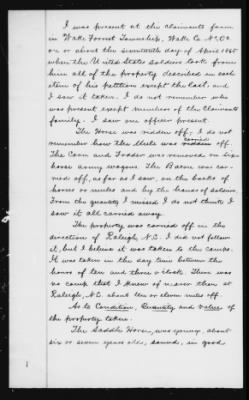 I was present at the claimants farm
in Wake Forest Township, Wake Co N.C.
on or about the seventeenth day of April 1865
when the United States Soldiers took from
him all of the property described in each
item of his petition except the last, and
I saw it taken. I do not remember who
was present except members of the Claimants
family. I saw one officer present.
The Horse was ridden off; I do not
remember how the Mule was carried off.
The Corn and Fodder was removed on six
horse army wagons. The Bacon was car-
ried off, as far as I saw, on the backs of
horses or mules and by the hands of soldiers.
From the quantity I missed I do not think I
saw it all carried away.
The property was carried off in the
direction of Raleigh, N.C. I did not follow
it, but I believe it was taken to the camps.
It was taken in the day time between the
hours of ten and three o'clock. There was
no camp that I knew of nearer than at
Raleigh, N.C. about ten or eleven miles off.
As to Condition, Quantity and Value of
the property taken.
The Saddle Horse, was young, about
six or seven years old, sound, in good